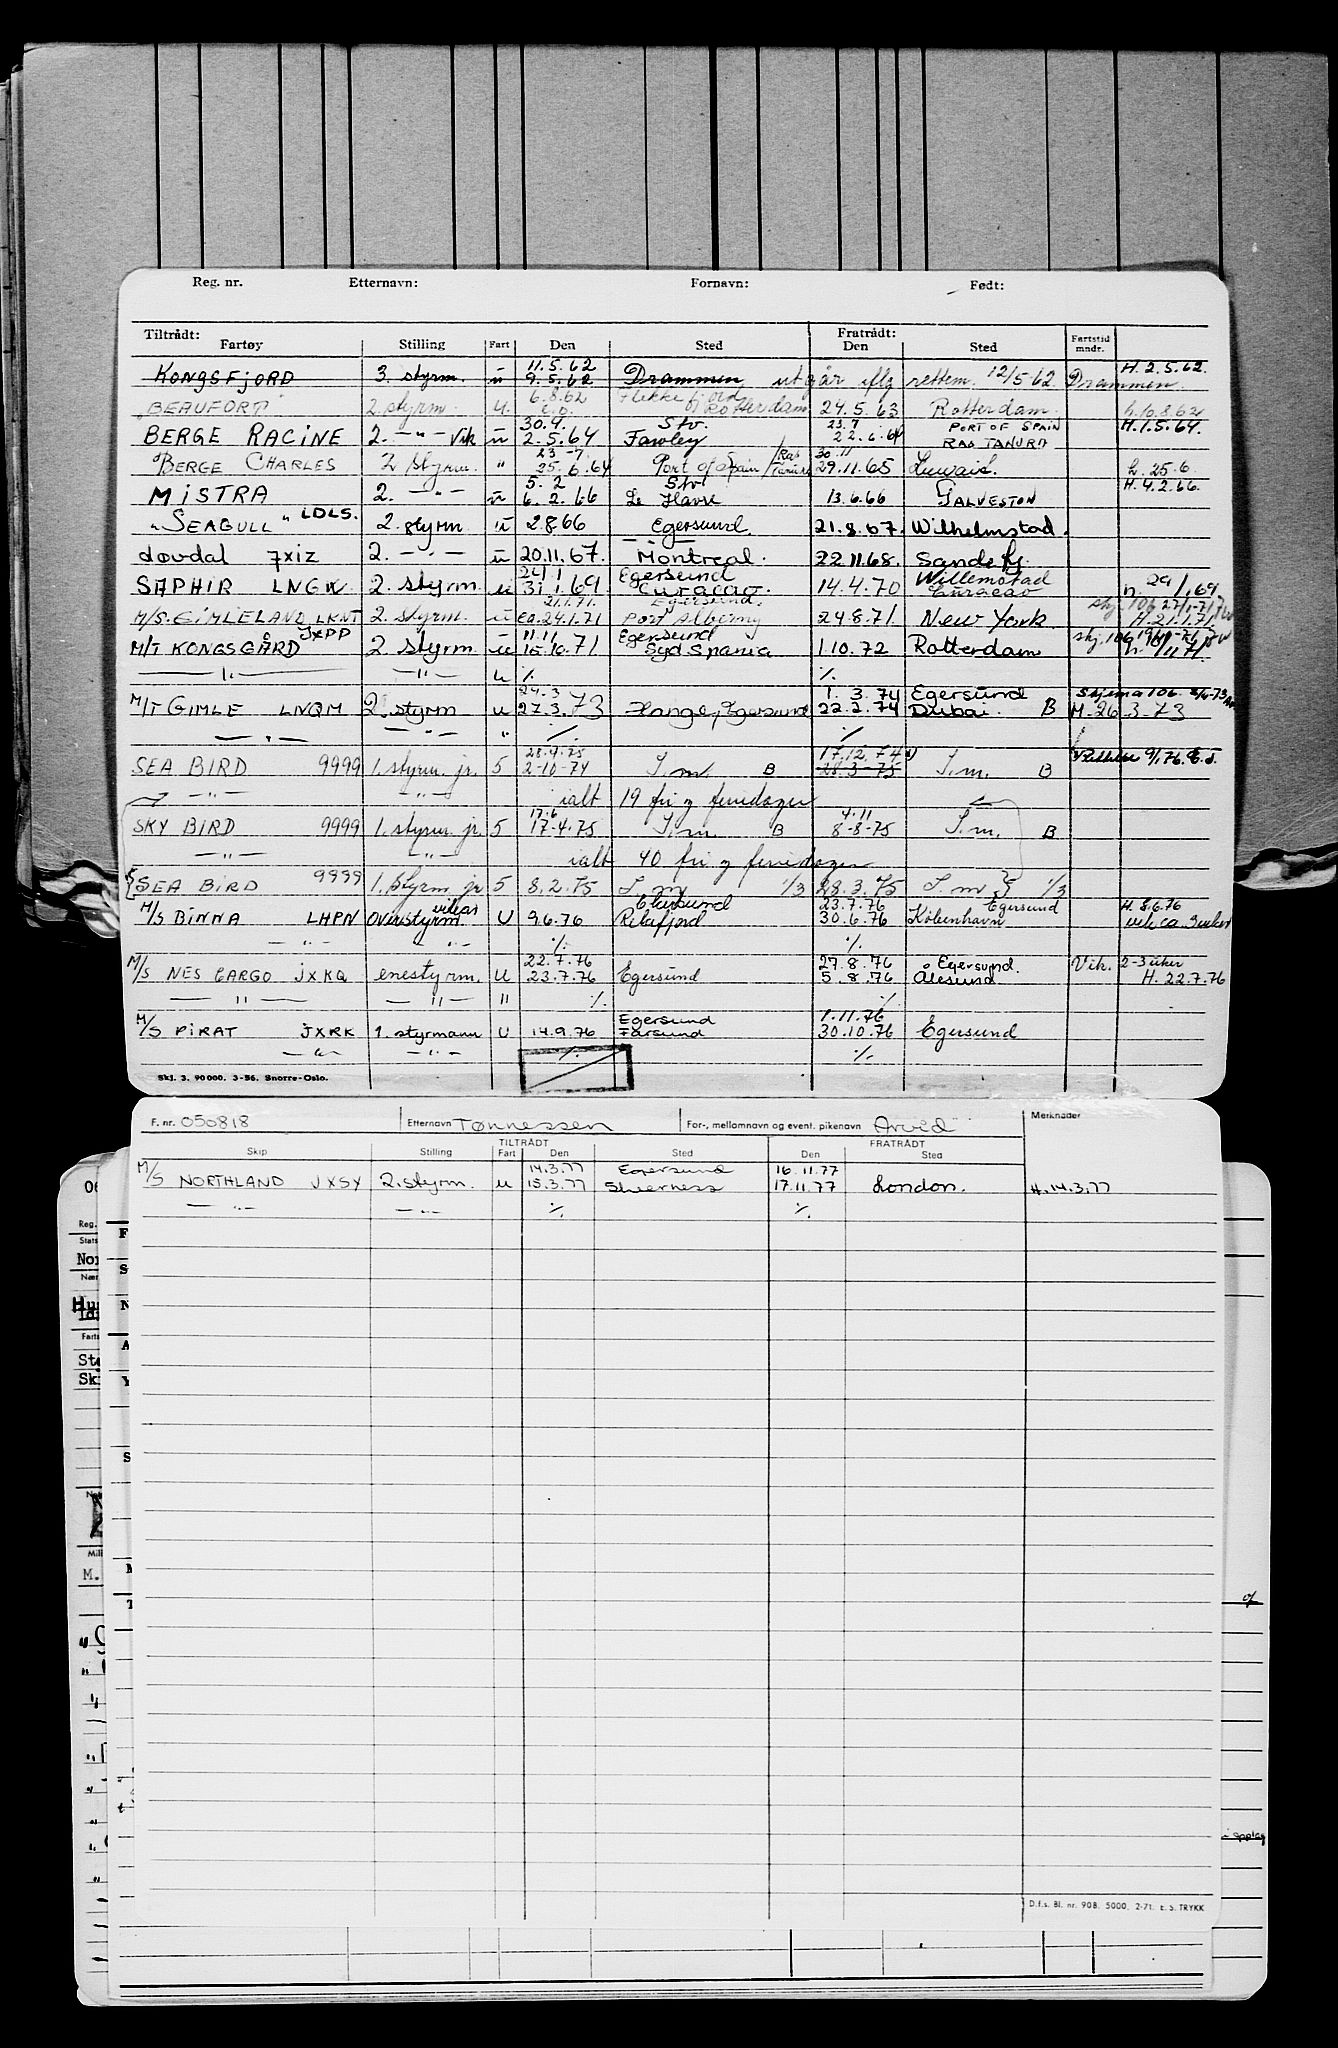 Reg. nr. Etternavn: Fornavn: Født:
Tiltrådt: Fratrådt:
Fartøy Stilling Fart Den Sted Den Sted Fartstid mndr.
11.5.62 H. 2.5.62.
KONGSFJORD 3. styrm. u 9.5.62 Drammen utgår iflg rettem. 12/5 62. Drammen.
6.8.62 Flekkefjord
"BEAUFORT" 2. styrm. u. Rotterdam 24.5.63 Rotterdam. h. 10.8.62
30.4. Stv. 23.7 PORT OF SPAIN H. 1.5.64.
BERGE RACINE 2. -"- vik u 2.5.64 Fawley 22.6.64 RAS TANURA
23-7 Ras Tanura 30.11
BERGE CHARLES 2 styrm. " 25.6.64 Port of Spain 29.11.65 h. 25.6.
5.2 Stv H. 4.2.66.
MISTRA 2. -"- u 6.2.66 Le Havre 13.6.66 GALVESTON
"SEAGULL" LDLS. 2. styrm u 2.8 66 Egersund 21.8.67. Wilhelmstad.
Løvdal JXIZ 2. -"- u 20.11.67. Montreal. 22.11.68. Sandefj.
24/1 Egersund Willemstad
SAPHIR LNGW 2. styrm. u 31.1.69 Curacao. 14.4.70 Curacao n. 29/1.69
21.1.71. Egersund. skj. 106 27/1-71
M/S. GIMLELAND LKNT 2. styrm. u ca. 24.1.71 Port Alberny 24.8.71 New York H. 21.1.71.
JXPP 11.11 Egersund skj. 106
M/T KONGSGÅRD 2 styrm u 15.10.71 Syd Spania 1.10.72 Rotterdam n. /11 71.
-"- -"- u ./. ./.
24.3 1. 3. 74 Egersund Skjema 106.
M/T GIMLE LNQM 2. styrm u 27.3.73 Hange, Egersund 22.2.74 Dubai. B H. 26 3-73
-"- " ./. ./.
28.9.75 17.12.74 Rettelse 9/1.76.
SEA BIRD 9999 1. styrm. jr. 5 2-10-74 I.m. B 28-3-75 I.m. B
-"- -"- ialt 19 fri og feriedager
17.6 4.11
SKY BIRD 9999 1. styrm. jr. 5 17-4-75 I.m. B 8-8-75 I.m. B
-"- -"- ialt 40 fri og feriedager
SEA BIRD 9999 1. styrm jr 5 8.2.75 I.m 1/3 28.3.75 I.m 1/3
vikar 23.7.76 Egersund H. 8.6.76
M/S BINNA LHPN Overstyrm. U 9.6.76 30.6.76 København vik ca. 3 uker
-"- ./. ./.
22.7.76 27.8.76 Egersund. Vik. 2-3 uker
M/S NES CARGO JXKQ enestyrm. U 23.7.76 Egersund 5.8.76 Ålesund H. 22.7.76
-"- -"- " ./. ./.
Egersund 1.11.76
M/S PIRAT JXRK 1. styrmann U 14.9.76 Farsund 30.10.76 Egersund
-"- -"- ./. ./.
Skj. 3. 90000. 3-56. Snorre-Oslo.
F. nr. 050818 Etternavn Tønnessen For-, mellomnavn og event. pikenavn Arvid Merknader
TILTRÅDT FRATRÅDT
Skip Stilling Fart Den Sted Den Sted
14.3.77 Egersund 16.11.77
M/S NORTHLAND JXSY 2. styrm. u 15.3.77 Sheerness 17.11.77 London. H. 14.3.77
-"- -"- ./. ./.
D.f.s. Bl. nr. 908. 5000, 2-71. E. S. TRYKK